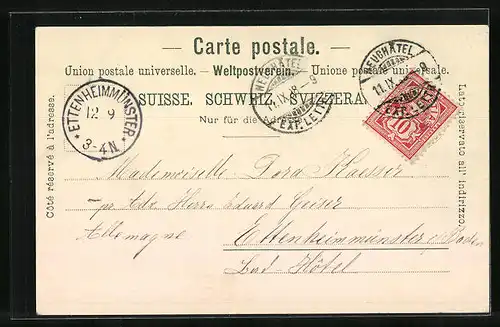 — Carte postale. —
Union postale universelle. — Weltpostverein. — Unione postale universale.
SUISSE. SCHWEIZ. SVIZZERA
Nur für die Adresse
Côté réservé à l'adresse.
Lato riservato all' indirizzo.
NEUCHÂTEL
11. IX
EXP. LETT.
NEUCHÂTEL
11. IX
EXP. LETT.
10
ETTENHEIMMÜNSTER
12 9
3-4N.
Mademoiselle Dora Haesser
pr Adr. Herrn Eduard Geiser
Allemagne Ettenheimmünster Baden
Bad-Hôtel